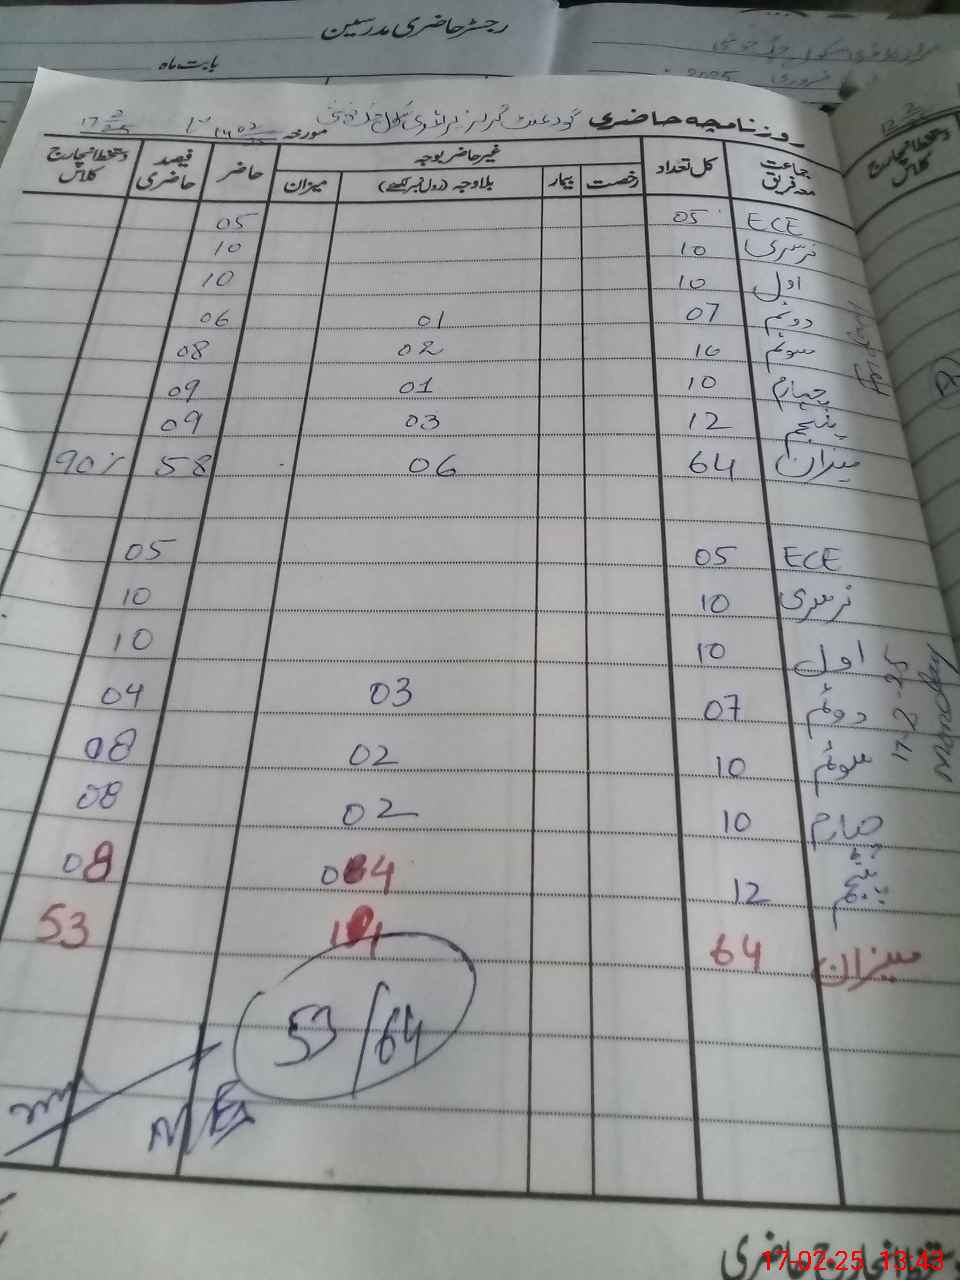 رجسٹر حاضری مدرسین
بابت ماہ
فروری 2025
روزنامچہ حاضری گورنمنٹ گرلز پرائمری سکول مورخہ
جماعت معہ فریق کل تعداد غیر حاضر بوجہ حاضر فیصد حاضری دستخط انچارج کلاس
رخصت بیمار بلاوجہ (رول نمبر لکھیے) میزان
ECE 05 05
نرسری 10 10
اول 10 10
دوئم 07 01 06
سوئم 10 02 08
چہارم 10 01 09
پنجم 12 03 09
میزان 64 06 58 90%
ECE 05 05
نرسری 10 10
اول 10 10
دوئم 07 03 04
سوئم 10 02 08
چہارم 10 02 08
پنجم 12 04 08
میزان 64 11 53
53/64
17-2-25
Monday
دستخط انچارج کلاس
دستخط انچارج حاضری
17-02-25 13:43